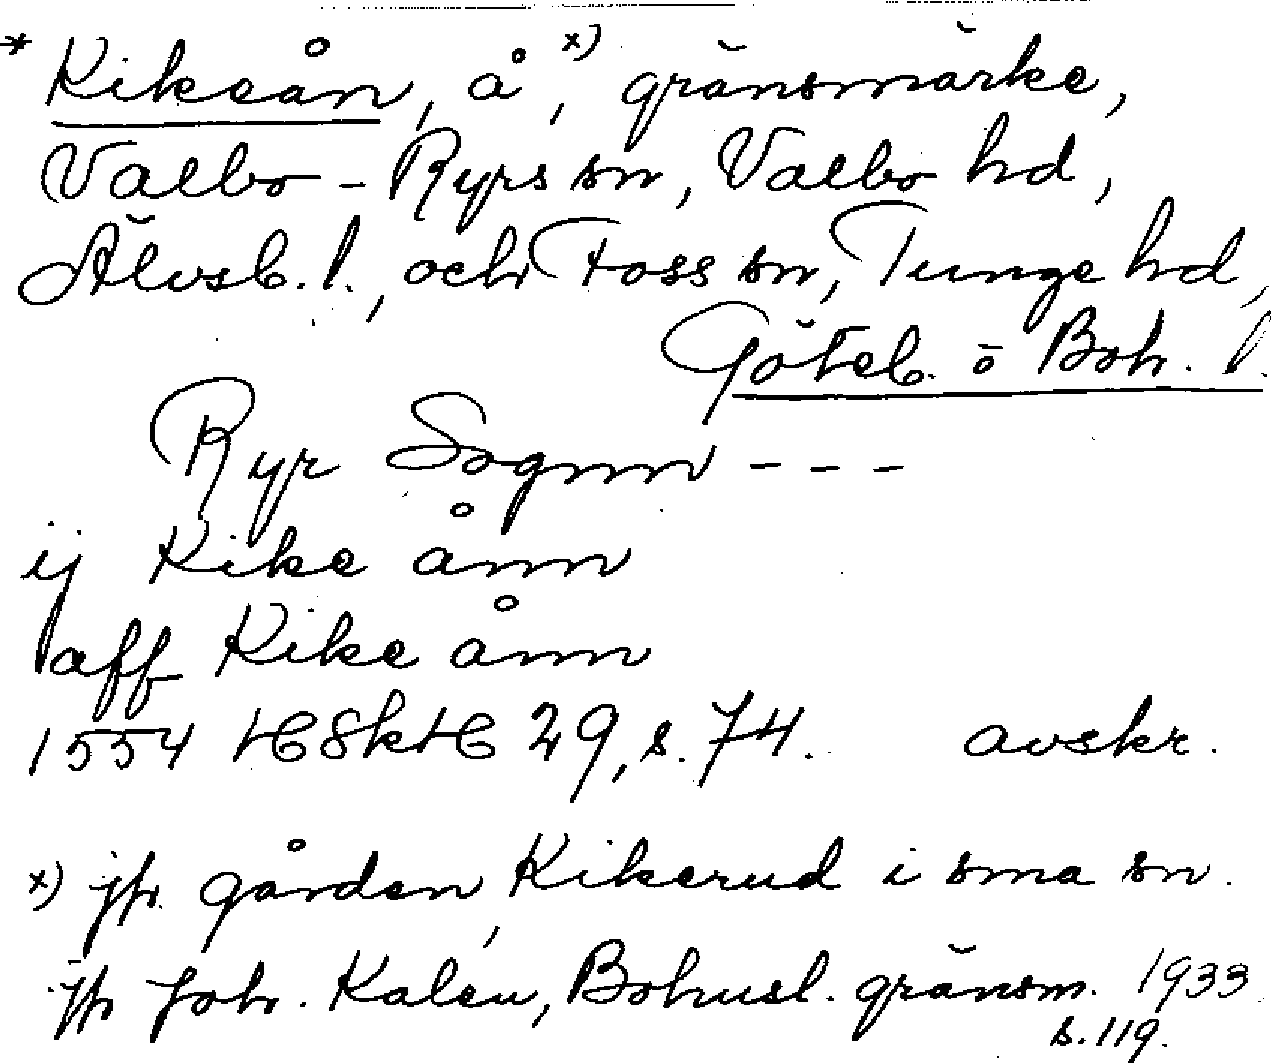 * Kikeån, å, x) gränsmärke,
Valbo-Ryrs sn, Valbo hd,
Älvsb. l., och Foss sn, Tunge hd,
Göteb. o Boh. l.
Ryr Sognn - - -
ij Kike ånn
aff Kike ånn
1554 HSkH 29, s. 74. avskr.
x) jfr. gården, Kikerud i sma sn.
jfr Joh. Kalén, Bohusl. gränsm. 1933
s. 119.